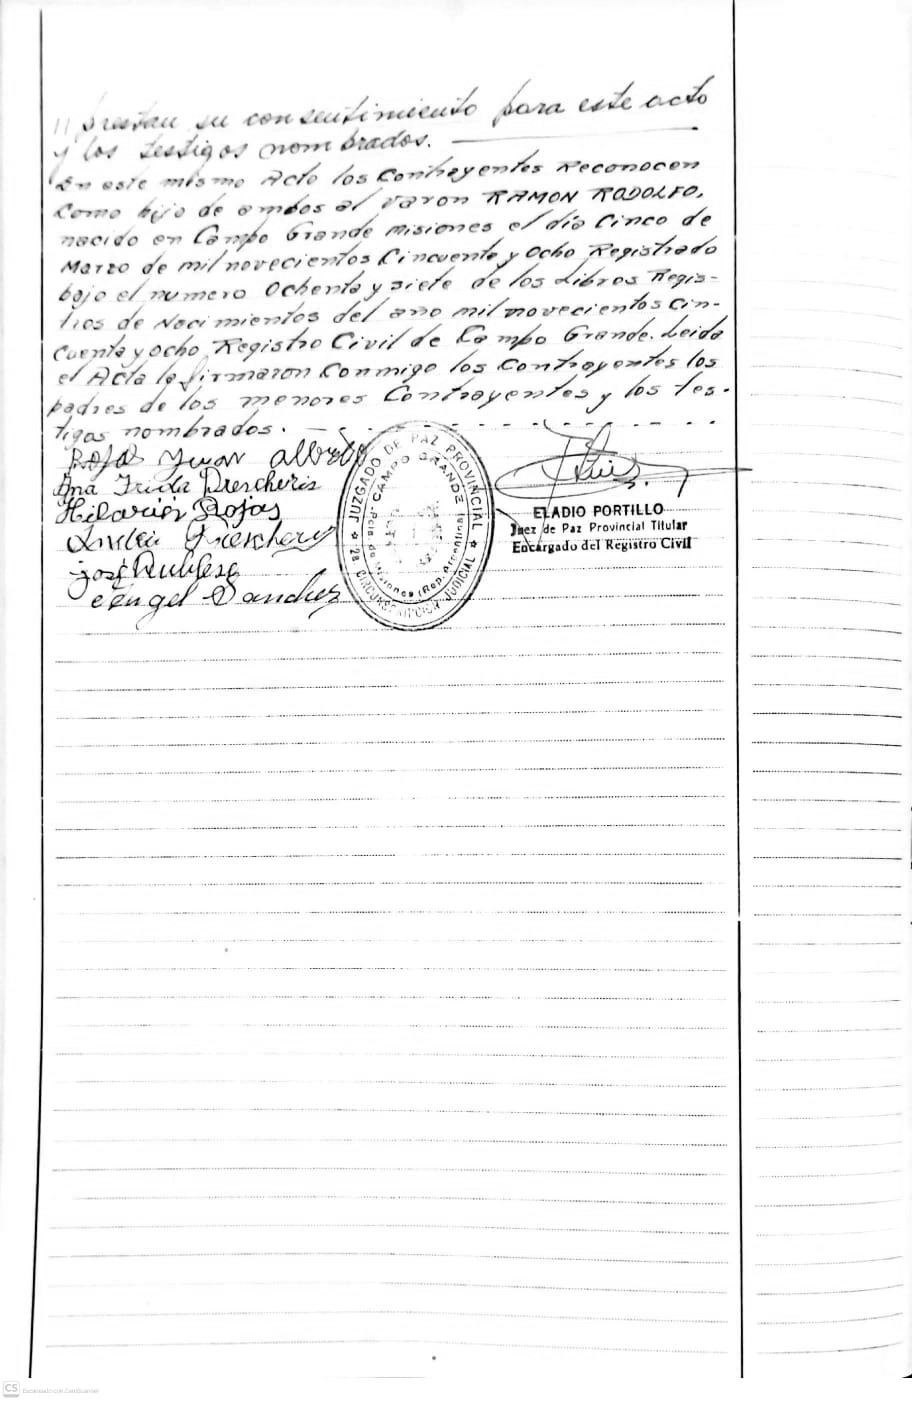 // prestan su consentimiento para este acto
y los testigos nombrados.
En este mismo Acto los Contrayentes Reconocen
como hijo de ambos al varon RAMON RODOLFO,
nacido en Campo Grande misiones el día Cinco de
Marzo de mil novecientos Cincuenta y Ocho Registrado
bajo el numero Ochenta y siete de los Libros Regis-
tros de Nacimientos del año mil novecientos Cin-
cuenta y Ocho, Registro Civil de Campo Grande. Leida
el Acta la firmaron Conmigo los Contrayentes los
padres de los menores Contrayentes y los tes-
tigos nombrados.
Rojas Juan Alberto
Ana Frida
Hilarión Rojas
José
Angel Sanchez
JUZGADO DE PAZ PROVINCIAL
2a CIRCUNSCRIPCION JUDICIAL
CAMPO GRANDE
Pcia. de Misiones (Rep. Argentina)
ELADIO PORTILLO
Juez de Paz Provincial Titular
Encargado del Registro Civil
CS Escaneado con CamScanner